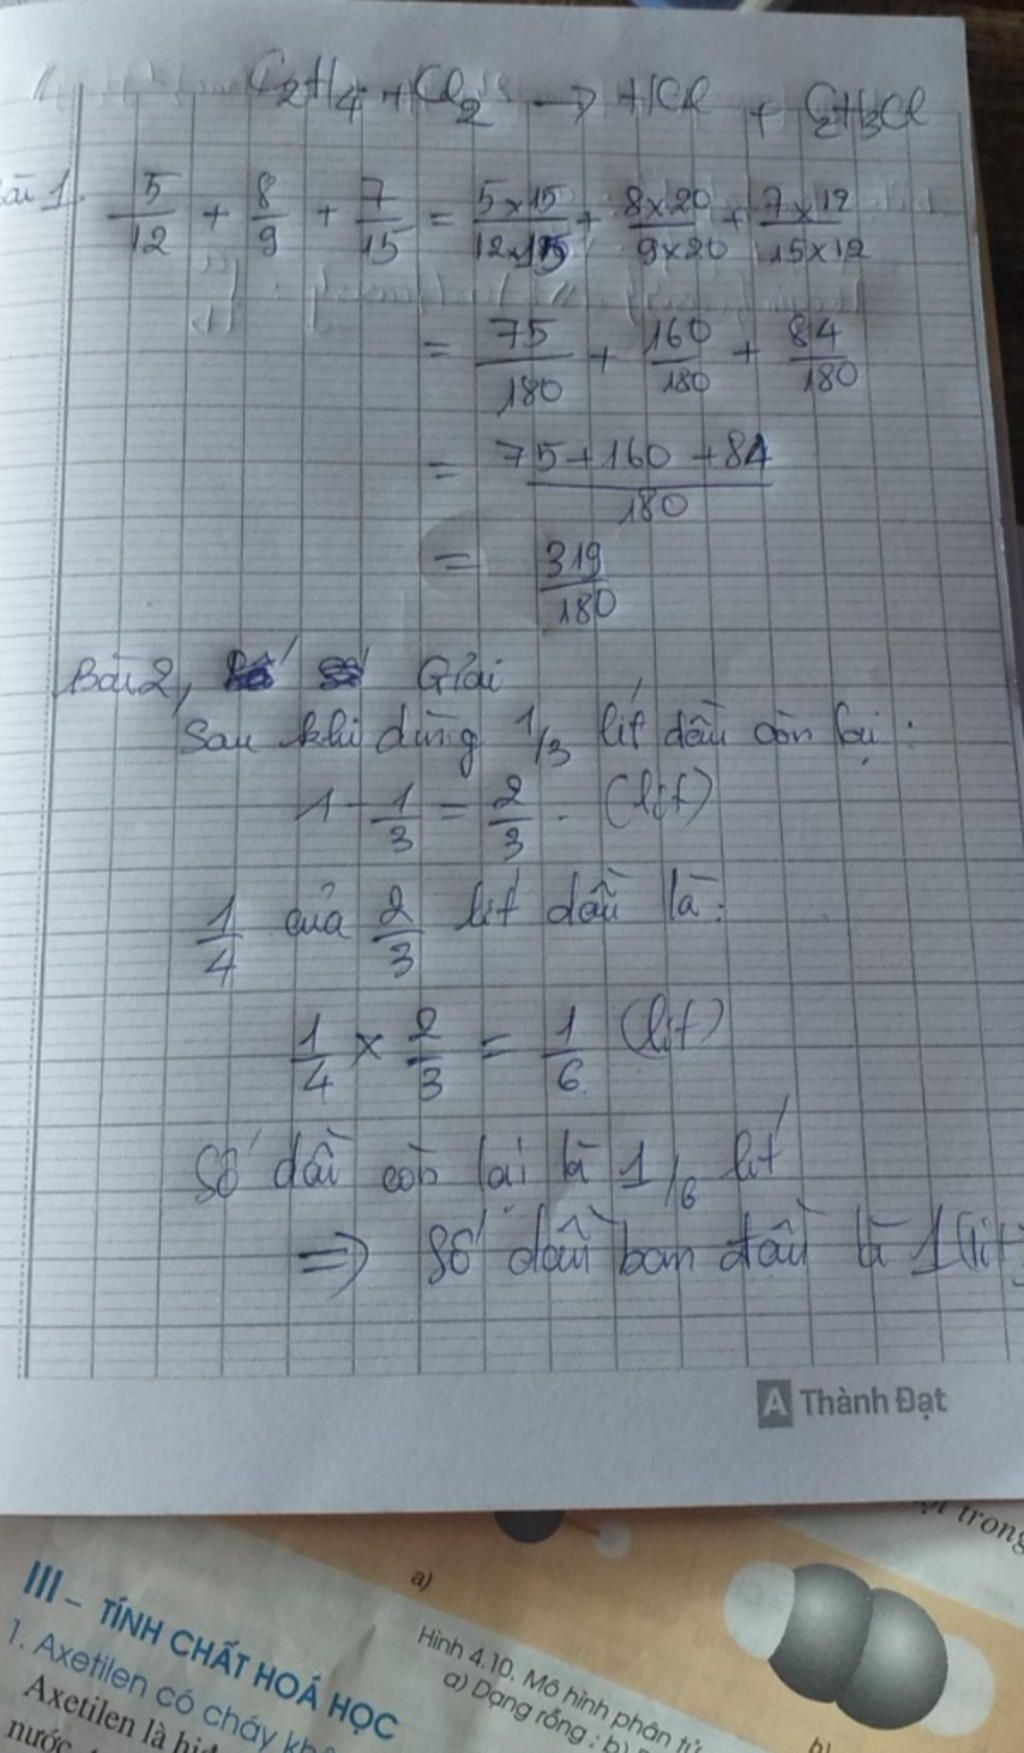 C₂H₄ + Cl₂ → HCl + C₂H₃Cl
Bài 1. 5/12 + 8/9 + 7/15 = 5x15/12x15 + 8x20/9x20 + 7x12/15x12
= 75/180 + 160/180 + 84/180
= 75+160+84/180
= 319/180
Bài 2, Giải
Sau khi dùng 1/3 lít dầu còn lại :
1 - 1/3 = 2/3 . (lít)
1/4 của 2/3 lít dầu là :
1/4 x 2/3 = 1/6 (lít)
Số dầu còn lại là 1/6 lít
=> Số dầu ban đầu là 1 (lít)
A Thành Đạt
trong
a)
III - TÍNH CHẤT HOÁ HỌC
1. Axetilen có cháy
Axetilen là
nước
Hình 4.10. Mô hình phân tử
a) Dạng rỗng ; b)
b)